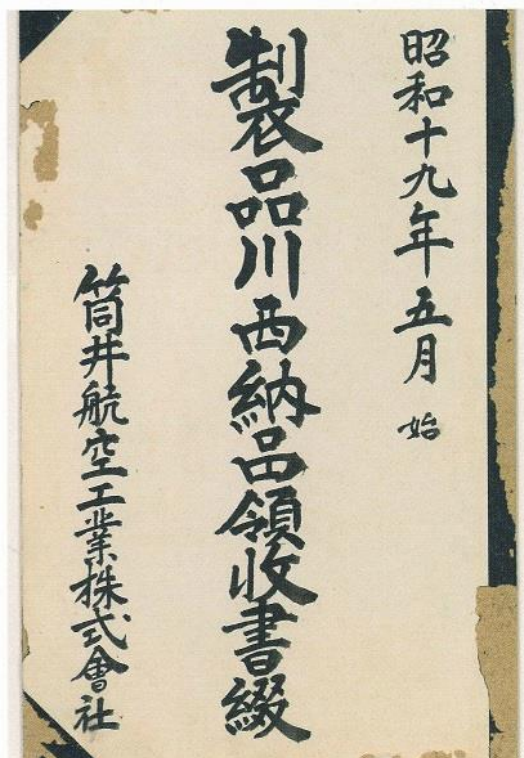 昭和十九年五月始
製品川西納品領收書綴
筒井航空工業株式會社